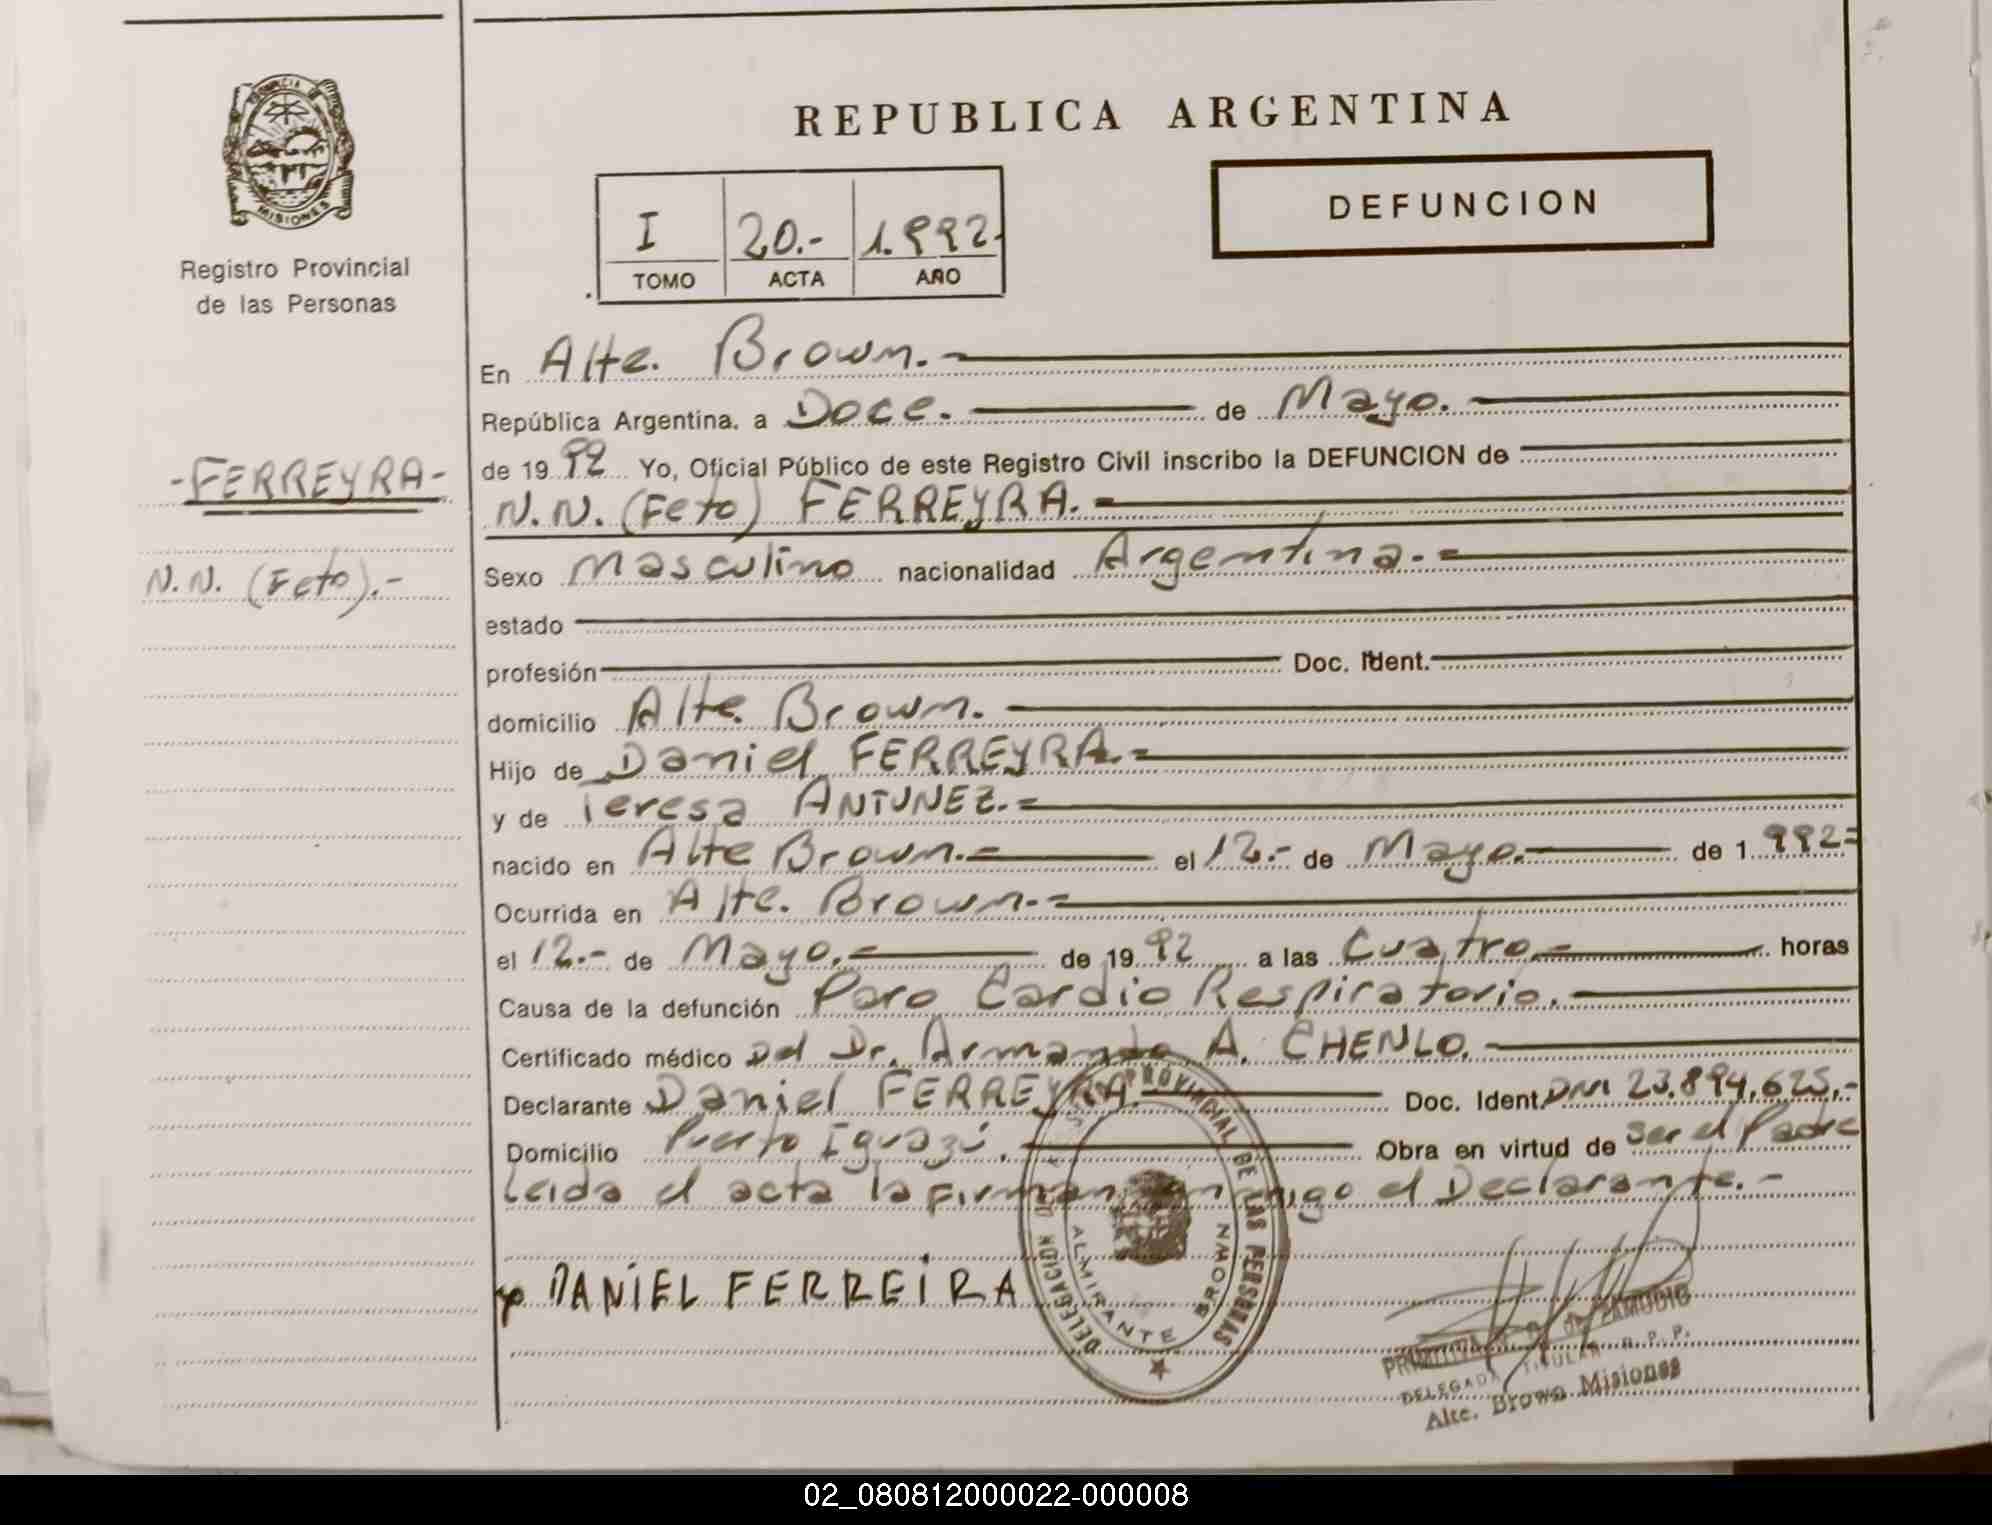 PROVINCIA DE
MISIONES
Registro Provincial
de las Personas
REPUBLICA ARGENTINA
DEFUNCION
I 20.- 1.992-
TOMO ACTA AÑO
En Alte. Brown.-
República Argentina, a Doce. de Mayo.
de 1992 Yo, Oficial Público de este Registro Civil inscribo la DEFUNCION de
-FERREYRA-
N.N. (Feto) FERREYRA.-
N.N. (Feto).-
Sexo Masculino nacionalidad Argentina.-
estado
profesión Doc. Ident.
domicilio Alte. Brown.
Hijo de Daniel FERREYRA.-
y de Teresa ANTUNEZ.-
nacido en Alte Brown.- el 12.- de Mayo. de 1.992-
Ocurrida en Alte. Brown.-
el 12.- de Mayo.- de 1992 a las Cuatro.- horas
Causa de la defunción Paro Cardio Respiratorio.
Certificado médico Del Dr. Armando A. CHENLO.
Declarante Daniel FERREYRA.- Doc. Ident. DNI 23.894.625.-
Domicilio Puerto Iguazú. Obra en virtud de Ser el Padre
Leida el acta la Firman conmigo el Declarante.-
DANIEL FERREIRA
PROVINCIAL DE LAS PERSONAS
DELEGACION
ALMIRANTE BROWN
PRIMITIVA DE ZAMUDIO
DELEGADA TITULAR R. P. P.
Alte. Brown Misiones
02_080812000022-000008